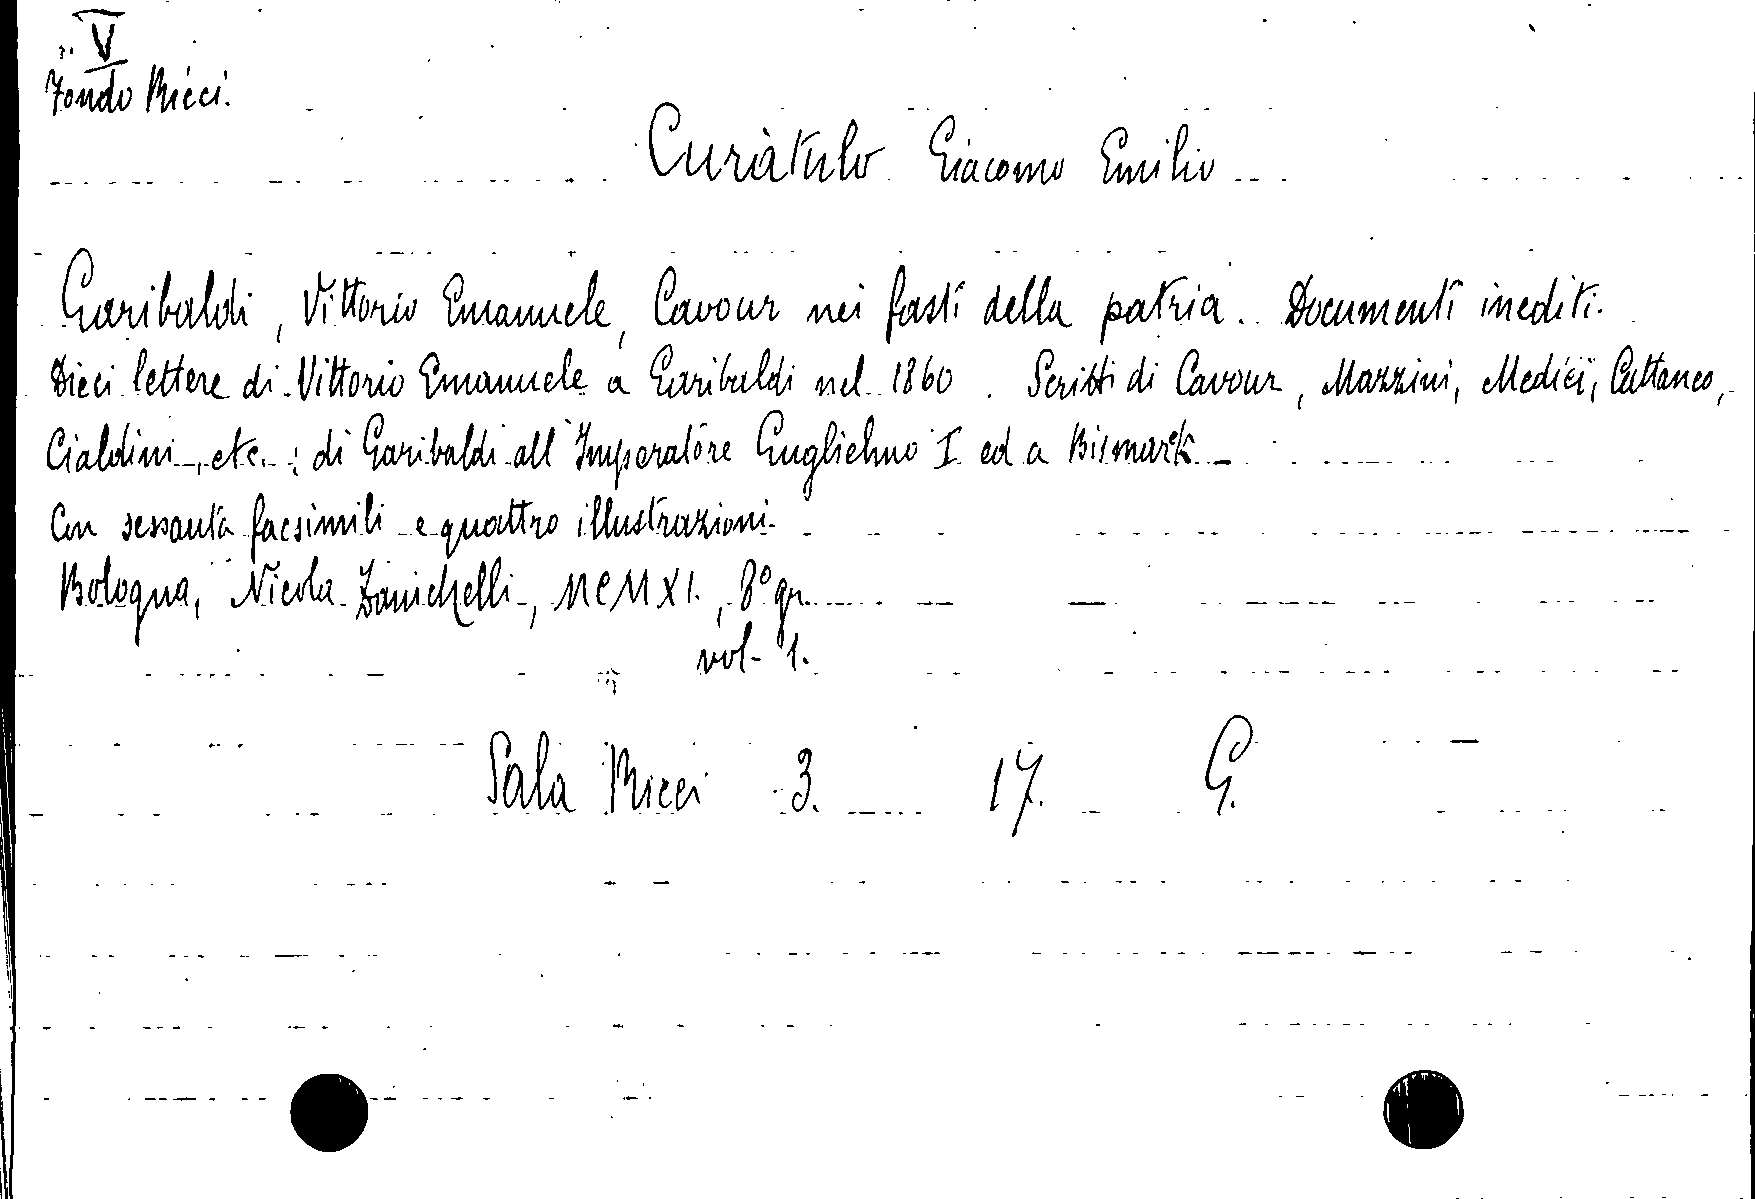 V
Fondo Ricci.
Curàtulo Giacomo Emilio
Garibaldi, Vittorio Emanuele, Cavour nei fasti della patria. Documenti inediti.
Dieci lettere di Vittorio Emanuele a Garibaldi nel 1860. Scritti di Cavour, Mazzini, Medici, Cattaneo,
Cialdini, etc.; di Garibaldi all'Imperatore Guglielmo I ed a Bismark
Con sessanta facsimili e quattro illustrazioni.
Bologna, Nicola Zanichelli, MCMXI., 8° gr.
vol. 1.
Sala Ricci 3. 17. G.